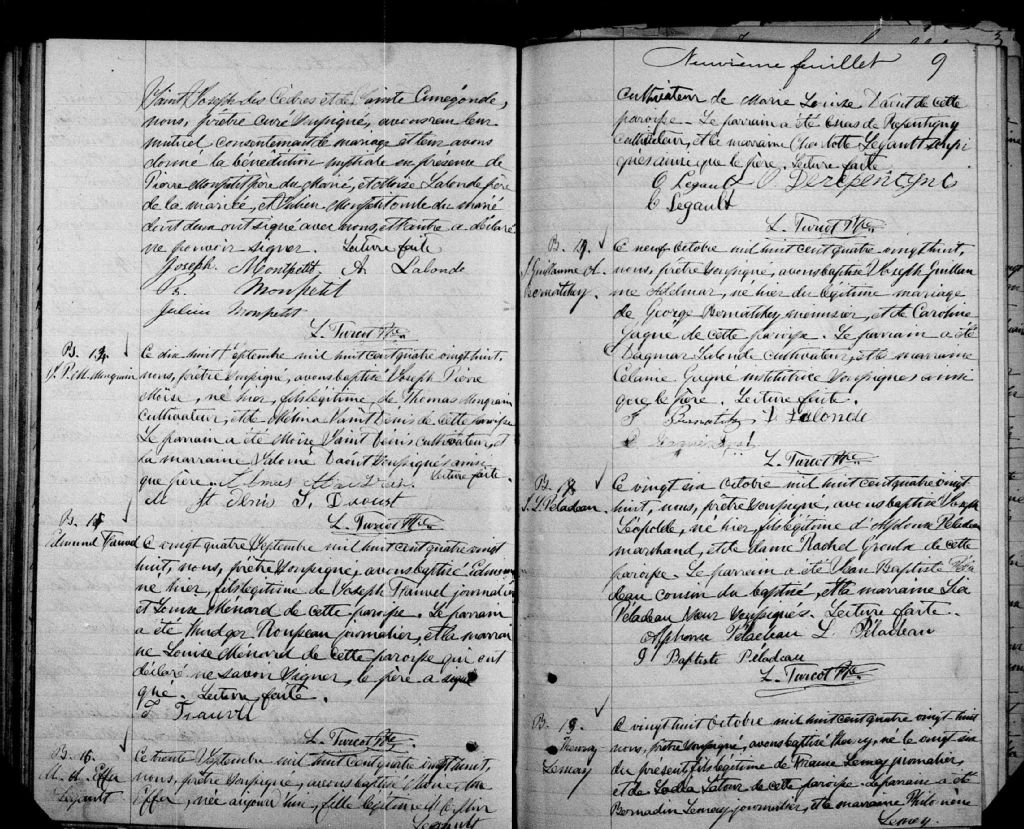 Saint Joseph des Cèdres et de Sainte Cunégonde,
nous, prêtre curé soussigné, avons reçu leur
mutuel consentement de mariage et leur avons
donné la bénédiction nuptiale en présence de
Pierre Montpetit père du marié, et Moïse Lalonde père
de la mariée, et Julien Montpetit oncle du marié
dont deux ont signé avec nous, et l'autre a déclaré
ne pouvoir signer. Lecture faite
Joseph. Montpetit, A. Lalonde
Monpetit
Julien Monpetit
L. Turcot Ptre
B. 14
J. P. M. Mongrain
Ce dix huit septembre mil huit cent quatre vingt huit,
nous, prêtre soussigné, avons baptisé Joseph Pierre
Moïse, né hier, fils légitime, de Thomas Mongrain
cultivateur, et de Mélina Saint Denis de cette paroisse
Le parrain a été Moïse Saint Denis cultivateur, et
la marraine Salomé Daoust soussignés ainsi
que père. Lecture faite.
M St Denis S. Daoust
L. Turcot Ptre
B. 15
Edmund Trauvel
Ce vingt quatre Septembre mil huit cent quatre vingt
huit, nous, prêtre soussigné, avons baptisé Edmund
né hier, fils légitime de Joseph Trauvel journalier
et Louise Ménard de cette paroisse. Le parrain
a été Rousseau journalier, et la marrai
ne Louise Ménard de cette paroisse qui ont
déclaré ne savoir signer, le père a signé
que. Lecture faite.
L. Turcot Ptre
B. 16.
M. A. Effa
Legault
Ce trente Septembre mil huit cent quatre vingt huit,
nous, prêtre soussigné, avons baptisé Marie,
Effa, née aujourd'hui, fille légitime d'
Legault
Neuvième feuillet 9
cultivateur de Marie Louise Daoust de cette
paroisse. Le parrain a été de Repentigny
cultivateur, et la marraine Charlotte Legault soussi
gnés ainsi que le père. Lecture faite
O Legault O. Derepentigni
C Legault
L. Turcot Ptre
B. 17.
J. Guillaume A.
Bernatchey.
Ce neuf Octobre mil huit cent quatre vingt huit,
nous, prêtre soussigné, avons baptisé Joseph Guillau
me Adelmar, né hier du légitime mariage
de George Bernatchey menuisier, et de Caroline
Gagné de cette paroisse. Le parrain a été
Dagmar Lalonde cultivateur, et la marraine
Célanie Gagné institutrice soussignés ainsi
que le père. Lecture faite.
D Lalonde
L. Turcot Ptre
B. 18
J. L. Péladeau.
Ce vingt six Octobre mil huit cent quatre vingt
huit, nous, prêtre soussigné, avons baptisé Joseph
Léopolde, né hier, fils légitime d'Alphonse Péladeau
marchand, et de dame Rachel Groulx de cette
paroisse. Le parrain a été Jean Baptiste Péla
deau cousin du baptisé, et la marraine Lia
Péladeau soeur soussignés. Lecture faite.
Alphonse Péladeau L. Péladeau
J Baptiste Péladeau
L. Turcot Ptre
B. 19
Henry
Lemay
Ce vingt huit Octobre mil huit cent quatre vingt huit
nous, prêtre soussigné, avons baptisé Henry, né le vingt six
du présent, fils légitime de Lemay journalier,
et de Latour de cette paroisse. Le parrain a été
Bernadin Lemay journalier, et la marraine Philomène
Lemay.